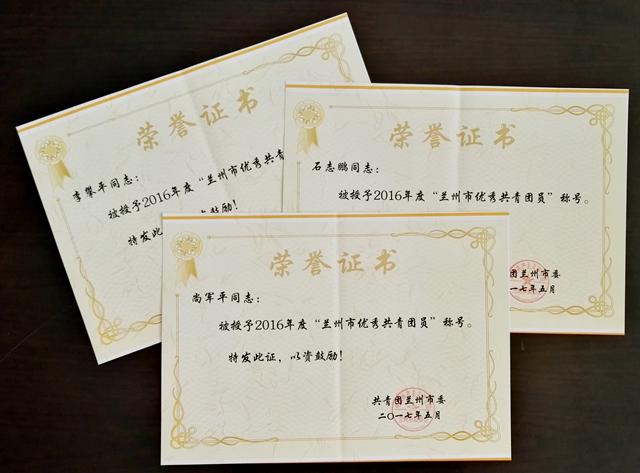 荣誉证书
李攀平同志：
被授予2016年度“兰州市优秀共青
特发此
鼓励！
荣誉证书
石志鹏同志：
被授予2016年度“兰州市优秀共青团员”称号。
团兰州市委
一七年五月
荣誉证书
尚军平同志：
被授予2016年度“兰州市优秀共青团员”称号。
特发此证，以资鼓励！
共青团兰州市委
二〇一七年五月